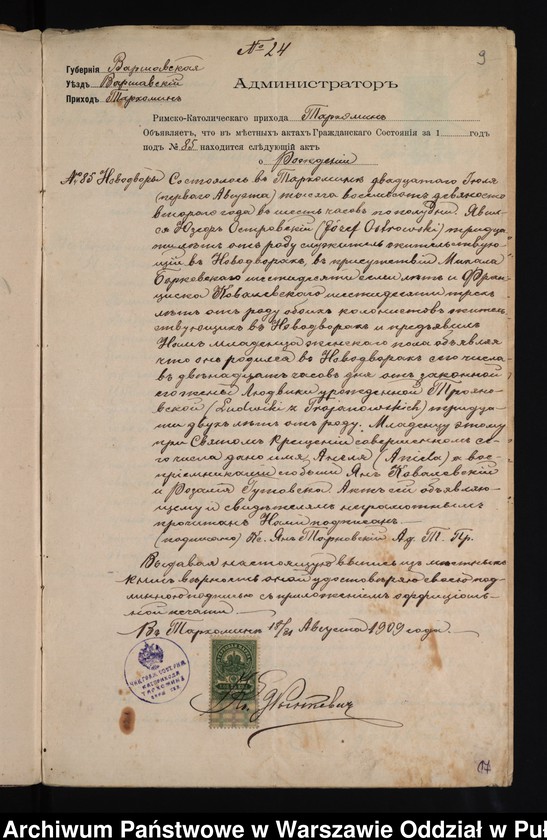 № 24
9
Губернія Варшавская
Уѣздъ Варшавскій
Приходъ Тархоминъ
Администраторъ
Римско-Католическаго прихода Тархоминъ
Объявляетъ, что въ мѣстныхъ актахъ Гражданскаго Состоянія за 1 годъ
подъ № 85 находится слѣдующій актъ
о Рожденіи
№ 85 Новодворы Состоялось въ Тархоминѣ двадцатаго Іюля
(перваго Августа) тысяча восемьсотъ девяносто
втораго года въ шесть часовъ по полудни. Явил-
ся Юзефъ Островскій (Józef Ostrowski) тридца-
ти лѣтъ отъ роду служитель жительствую-
щій въ Новодворахъ, въ присутствіи Михала
Борковскаго шестидесяти семи лѣтъ и Фран-
циска Ковалевскаго шестидесяти трехъ
лѣтъ отъ роду обоихъ колонистовъ житель-
ствующихъ въ Новодворахъ и предъявилъ
Намъ младенца женскаго пола объявляя
что онъ родился въ Новодворахъ сего числа
въ двѣнадцать часовъ дня отъ законной
его жены Людвики урожденной Трояно-
вской (Ludwiki z Trojanowskich) тридца-
ти двухъ лѣтъ отъ роду. Младенцу этому
при Святомъ Крещеніи совершенномъ се-
го числа дано имя Анеля (Aniela) а вос-
пріемниками его были Янъ Ковалевскій
и Розалія Гутовска. Актъ сей объявляю-
щему и свидѣтелямъ неграмотнымъ
прочитанъ Нами подписанъ
(подписано) Кс. Янъ Тарновскій Ад. Т. Пр.
Выдавая настоящую выпись изъ мѣстныхъ
книгъ вѣрность оной удостовѣряю своею под-
линною подписью съ приложеніемъ оффиціаль-
ной печати
Въ Тархоминѣ 18/31 Августа 1909 года.
Кс.
17
Archiwum Państwowe w Warszawie Oddział w Pul